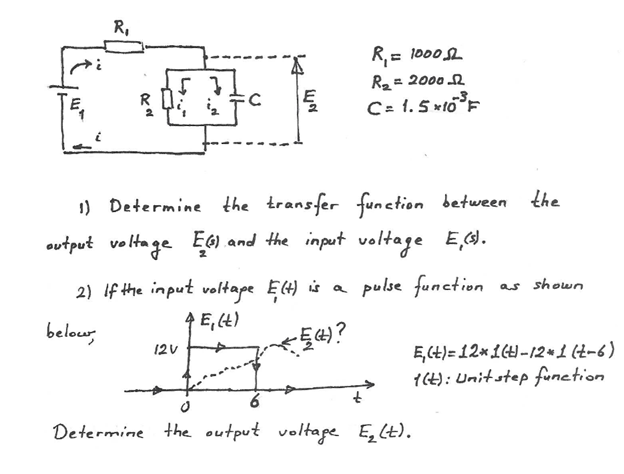 R₁
i
E₁
i
R₂
i₁
i₂
C
E₂
R₁ = 1000 Ω
R₂ = 2000 Ω
C = 1.5*10⁻³ F
1) Determine the transfer function between the
output voltage E₂(s) and the input voltage E₁(s).
2) If the input voltape E₁(t) is a pulse function as shown
below,
E₁(t)
12V
E₂(t)?
0
6
t
E₁(t)=12*1(t)-12*1(t-6)
1(t): Unit step function
Determine the output voltage E₂(t).